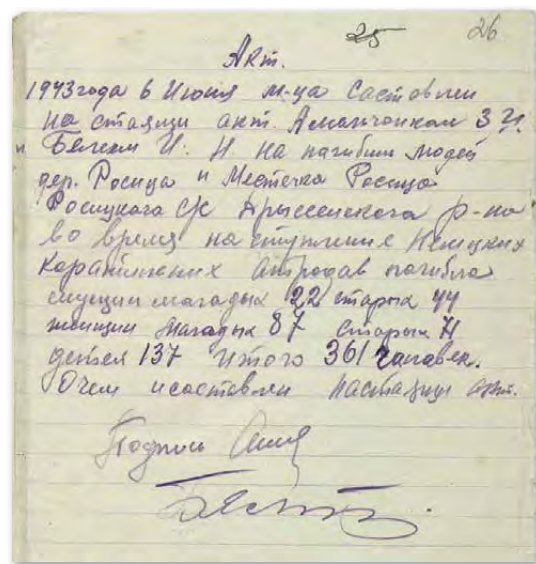 25 26
Акт.
1943 года 6 Июня м-ца Саставлен
на стаящи акт. Аманчонкам З И.
и Белкам И. Н на пагибши людей
дер. Росица и Местечка Россица
Росицкага С/С Дрыссенскога р-на
во время на ступление Немецких
Каратилних атрадав пагибла
мущин маладых 22 старых 44
женщин Маладых 87 Старых 71
детей 137 Итого 361 чалавек.
Очем исаставлен Настаящи акт.
Подпись